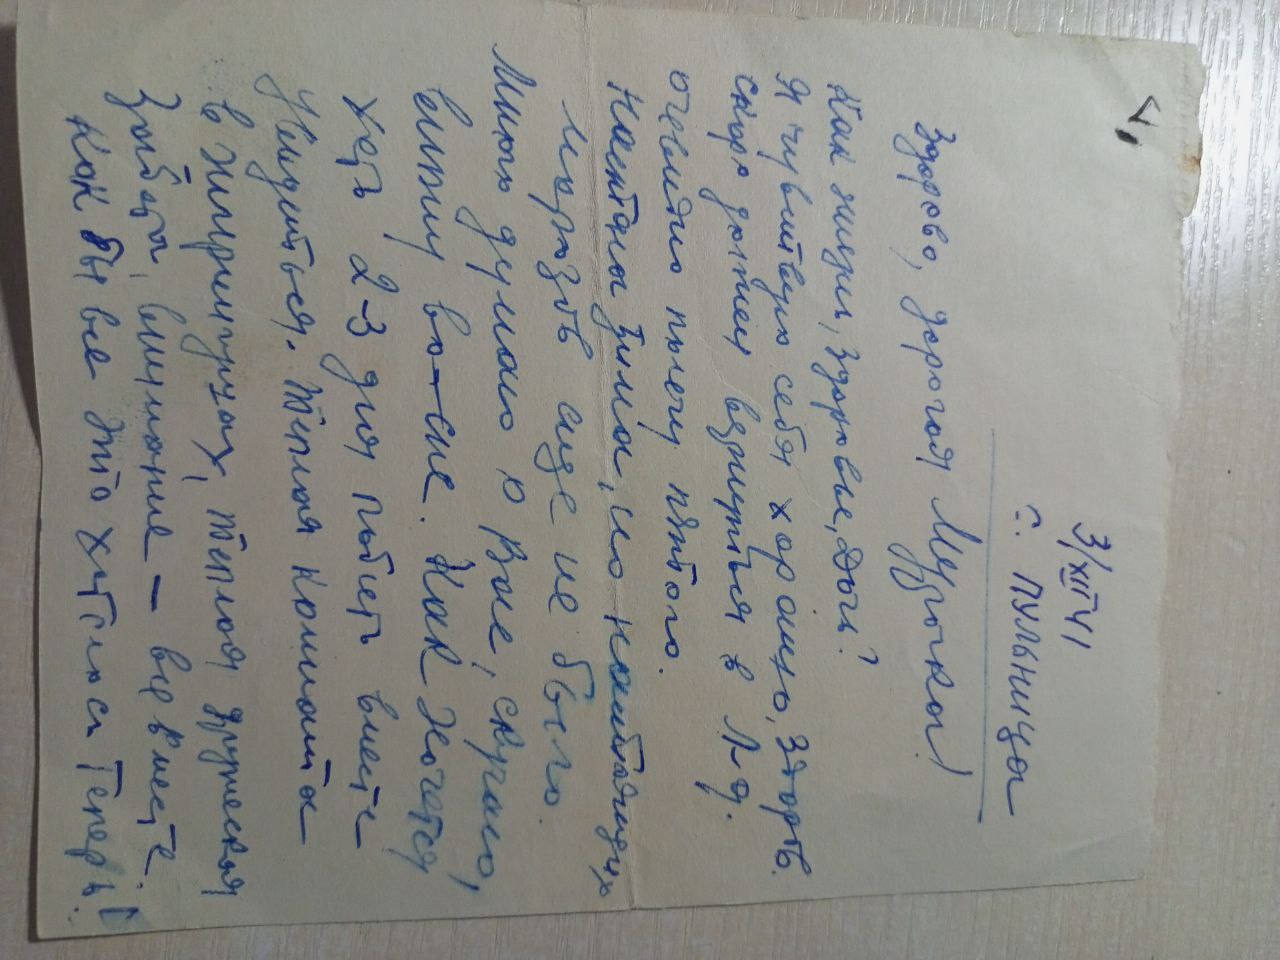 4,
3/XII 41
с. Пульница
Здорово, дорогая Мурочка!
Как жизнь, здоровье, дочь?
Я чувствую себя хорошо, здоров.
скоро должен вернуться в Л-д.
очевидно полечу пятого.
Настала зима, но настоящих
морозов еще не было.
Много думаю о Вас, скучаю,
вижу во-сне. Как хочется
хоть 2-3 дня побыть вместе
Уединиться. Теплая комната
в жизни, теплая дружеская
забота, внимание — все вместе.
Как бы все это хотелось теперь!